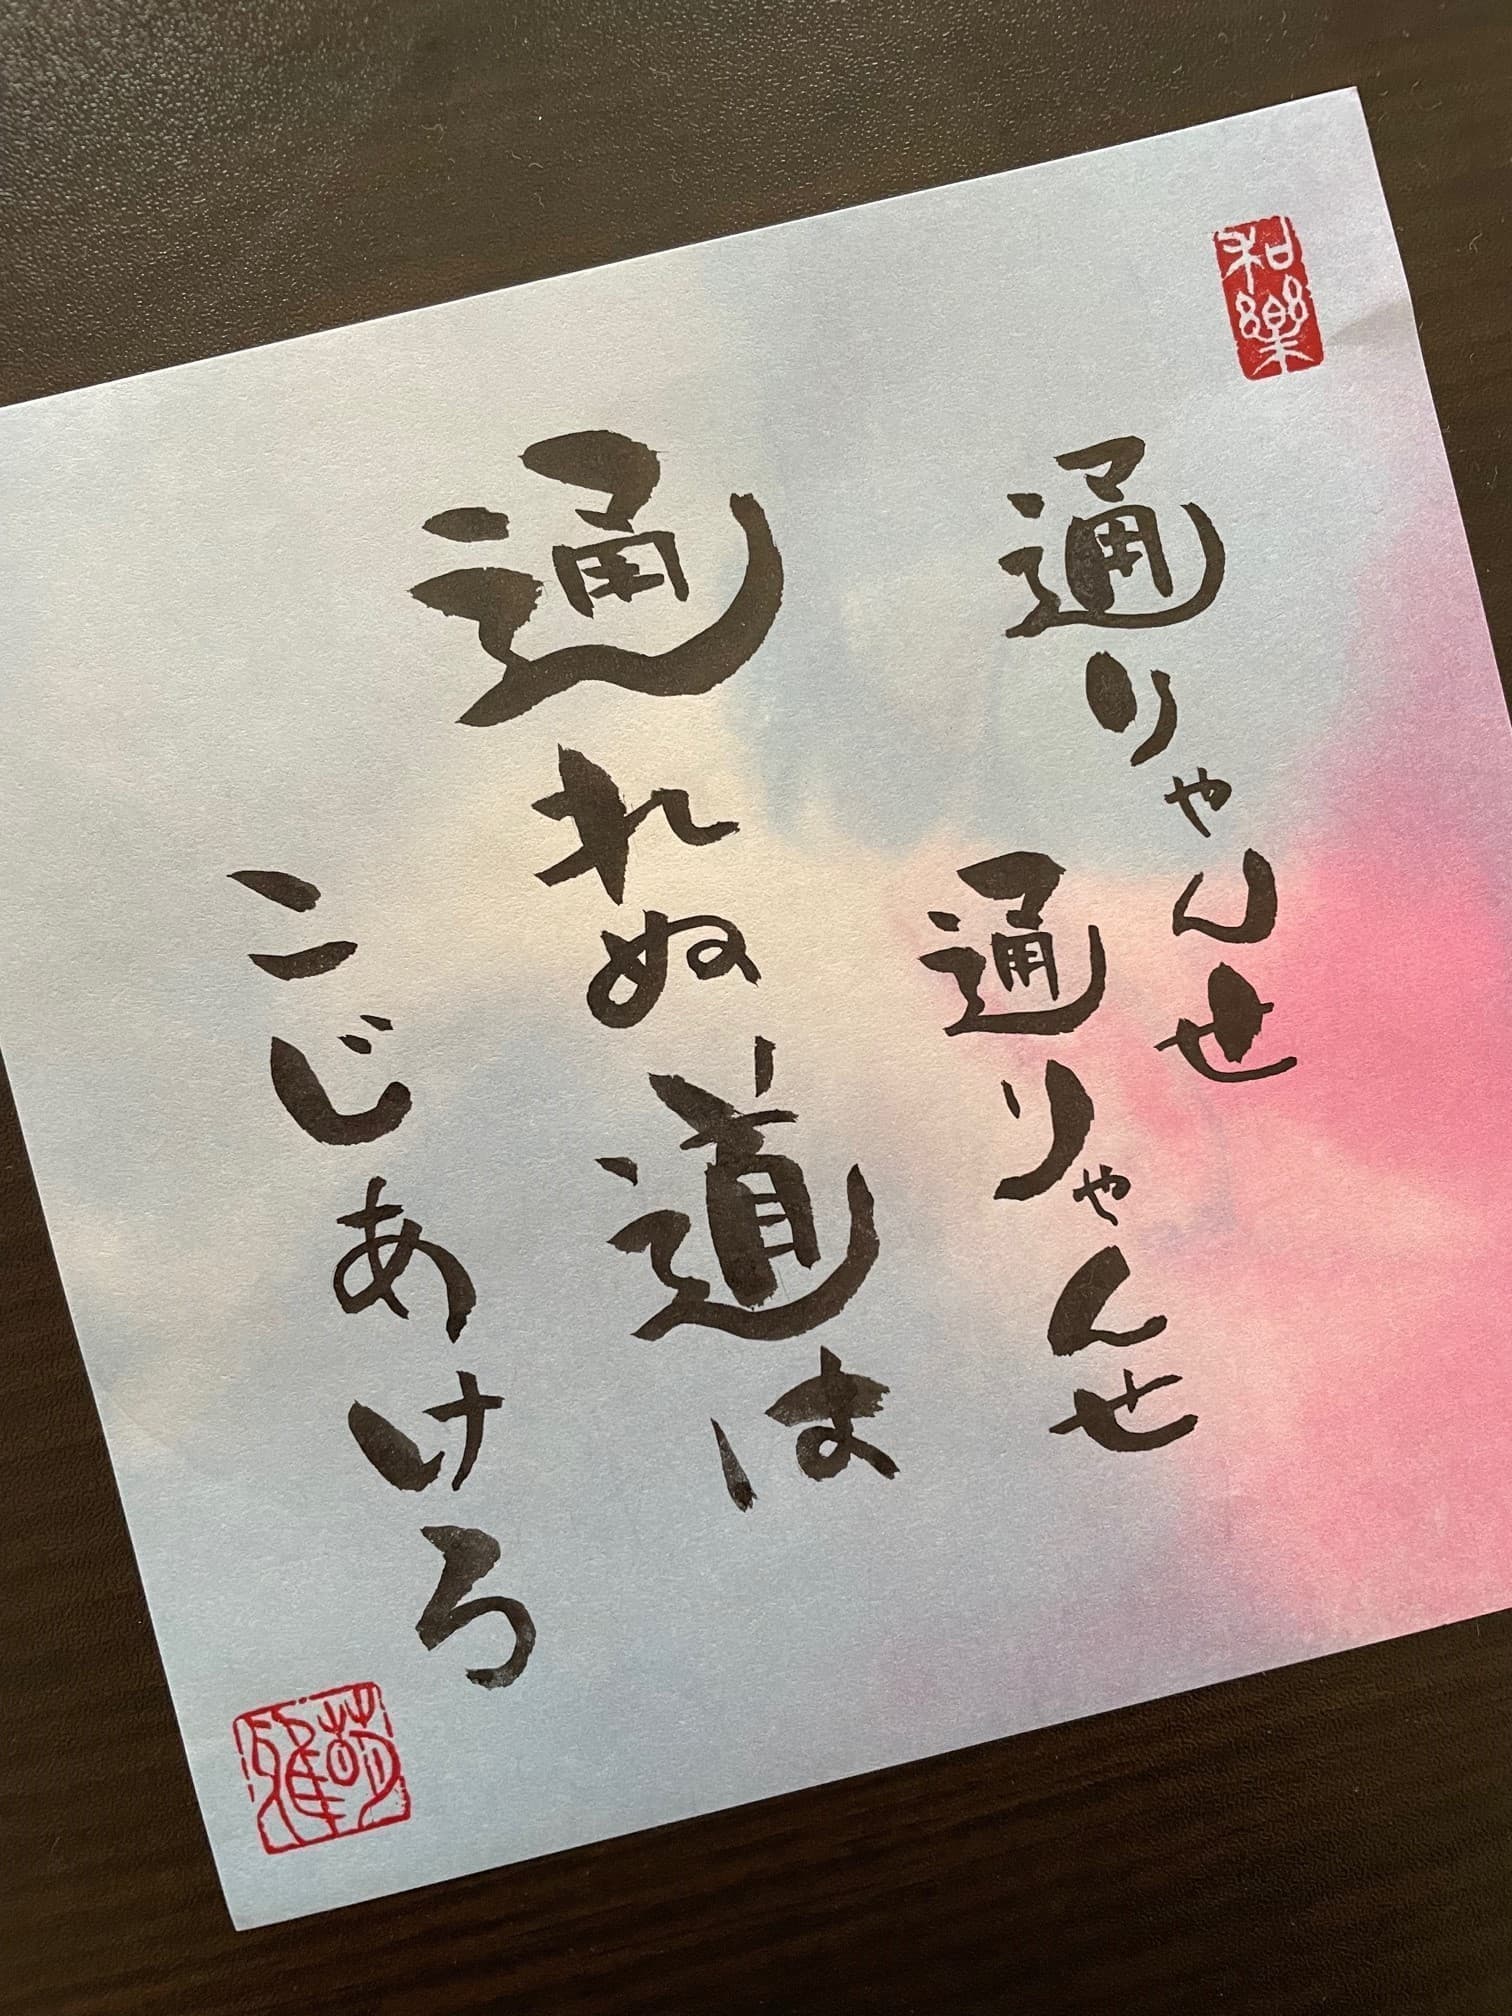 和樂
通りゃんせ
通りゃんせ
通れぬ道は
こじあけろ